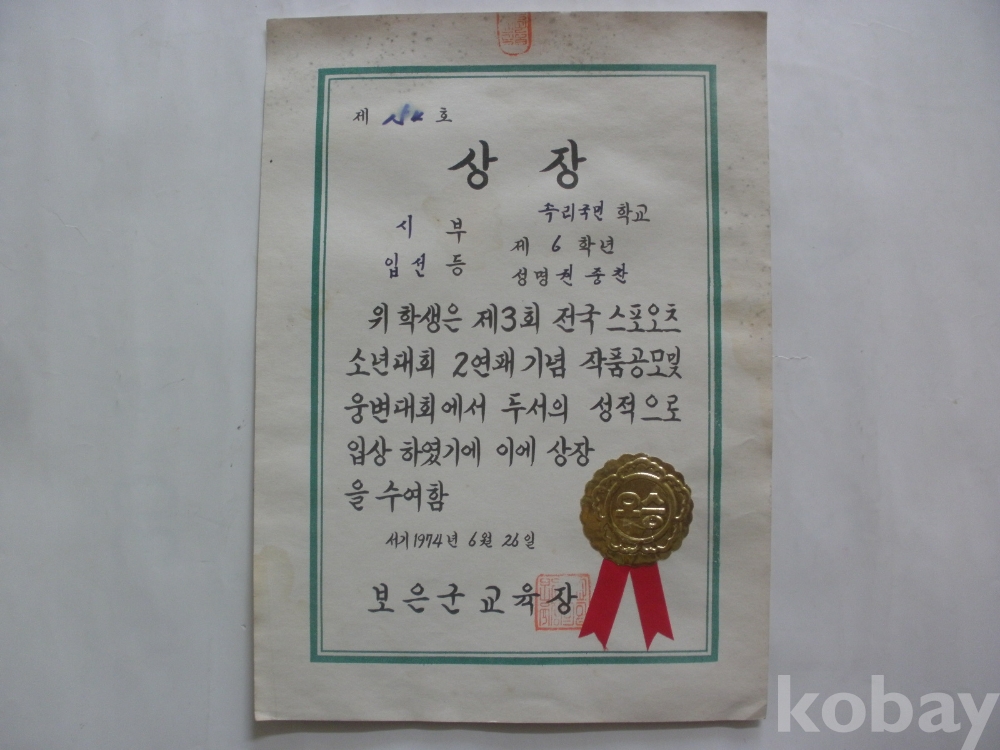 제 호
상 장
속리국민 학교
시 부
제 6 학년
입선 등
성명 권중찬
위 학생은 제3회 전국 스포오츠
소년대회 2연패 기념 작품공모및
웅변대회에서 두서의 성적으로
입상 하였기에 이에 상장
을 수여함
서기 1974년 6월 26일
우승
보은군교육장
kobay